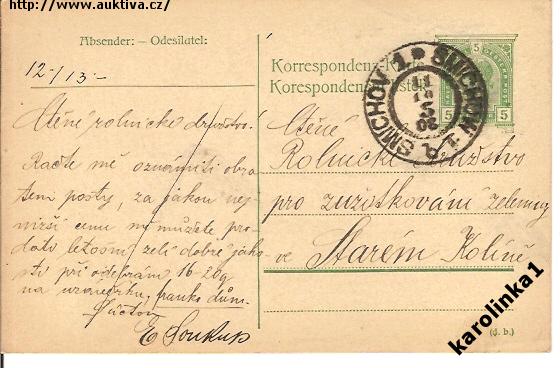 http://www.auktiva.cz/
Absender: — Odesílatel:
12/13 –
Ctěné rolnické družstvo.
Račte mě oznámiti obra
tem pošty, za jakou nej
nižší cenu mi můžete pro
dati letošní zelí dobré jako
sti při odebrání 16-20 q
na franko dům.
S úctou
E Soukup
Korrespondenz-Karte
Korespondenční lístek
5 5
SMÍCHOV 1 * SMICHOW 1
Ctěné
Rolnické družstvo
pro zužitkování zeleniny
ve Starém Kolíně
(d. b.)
karolinka1